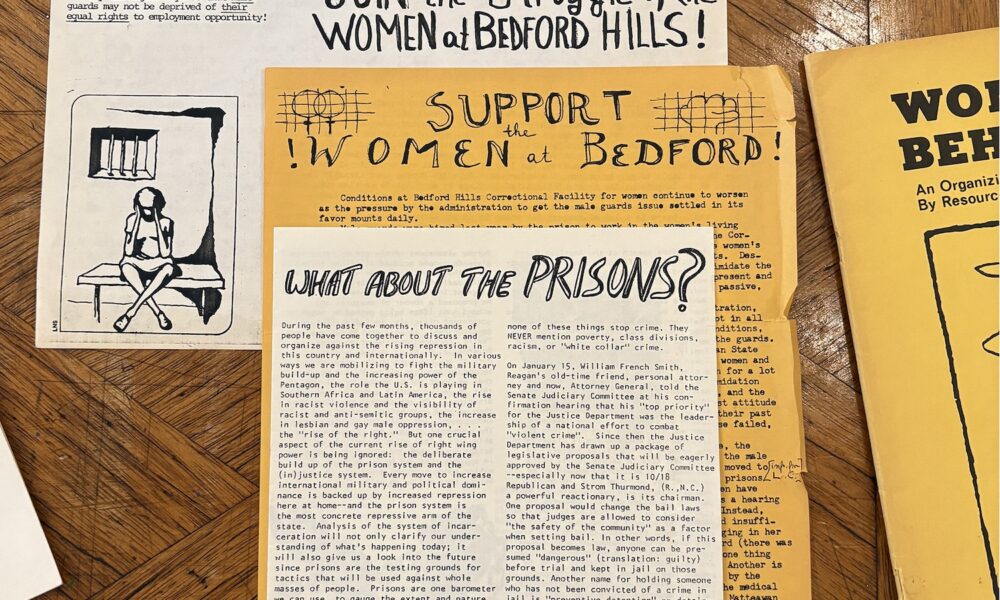 guards may not be deprived of their
equal rights to employment opportunity!
JOIN the Struggle of the
WOMEN at BEDFORD HILLS!
LNS
SUPPORT
the
!WOMEN at BEDFORD!
Conditions at Bedford Hills Correctional Facility for women continue to worsen
as the pressure by the administration to get the male guards issue settled in its
favor mounts daily.
Male guards were hired last year by the prison to work in the women's living
the Cor-
women's
ts. Des-
imidate the
present and
passive,
tration,
ot in all
nditions,
the guards.
an State
women and
n for a lot
midation
and the
st attitude
their past
se failed,
e, the
the male
moved to
prisons
en have
s a hearing
Instead,
d insuffi-
ging in her
rd (there was
one thing
Another is
by the
he medical
Matteawan
WHAT ABOUT THE PRISONS?
During the past few months, thousands of
people have come together to discuss and
organize against the rising repression in
this country and internationally. In various
ways we are mobilizing to fight the military
build-up and the increasing power of the
Pentagon, the role the U.S. is playing in
Southern Africa and Latin America, the rise
in racist violence and the visibility of
racist and anti-semitic groups, the increase
in lesbian and gay male oppression, . . .
the "rise of the right." But one crucial
aspect of the current rise of right wing
power is being ignored: the deliberate
build up of the prison system and the
(in)justice system. Every move to increase
international military and political domi-
nance is backed up by increased repression
here at home--and the prison system is
the most concrete repressive arm of the
state. Analysis of the system of incar-
ceration will not only clarify our under-
standing of what's happening today; it
will also give us a look into the future
since prisons are the testing grounds for
tactics that will be used against whole
masses of people. Prisons are one barometer
we can use to gauge the extent and nature
none of these things stop crime. They
NEVER mention poverty, class divisions,
racism, or "white collar" crime.
On January 15, William French Smith,
Reagan's old-time friend, personal attor-
ney and now, Attorney General, told the
Senate Judiciary Committee at his con-
firmation hearing that his "top priority"
for the Justice Department was the leader-
ship of a national effort to combat
"violent crime". Since then the Justice
Department has drawn up a package of
legislative proposals that will be eagerly
approved by the Senate Judiciary Committee
--especially now that it is 10/18
Republican and Strom Thurmond, (R.,N.C.)
a powerful reactionary, is its chairman.
One proposal would change the bail laws
so that judges are allowed to consider
"the safety of the community" as a factor
when setting bail. In other words, if this
proposal becomes law, anyone can be pre-
sumed "dangerous" (translation: guilty)
before trial and kept in jail on those
grounds. Another name for holding someone
who has not been convicted of a crime in
jail is "preventive detention" or detain
WO
BEH
An Organizi
By Resourc